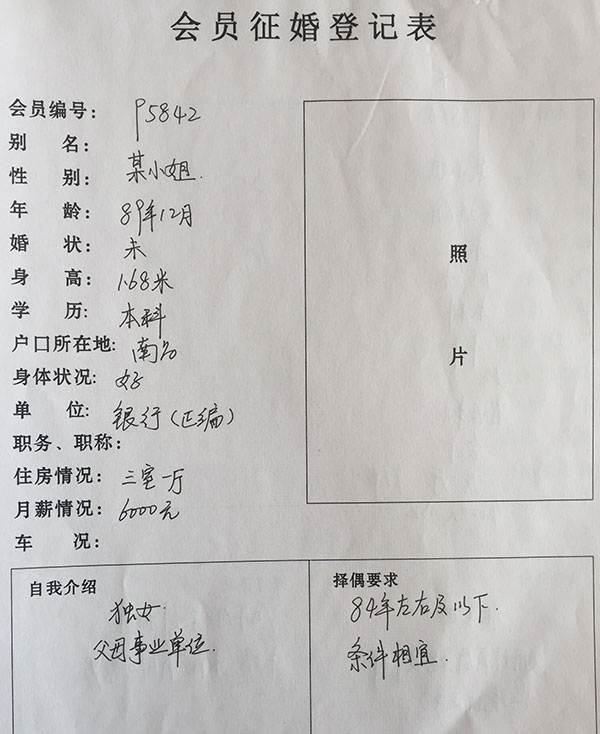 会员征婚登记表
会员编号: P5842
别 名:
性 别: 某小姐.
年 龄: 89年12月
婚 状: 未
身 高: 1.68米
学 历: 本科
户口所在地: 南昌
身体状况: 好
单 位: 银行(正编)
职务、职称:
住房情况: 三室一厅
月薪情况: 6000元
车 况:
照
片
自我介绍
独女.
父母事业单位.
择偶要求
84年左右及以下.
条件相宜.